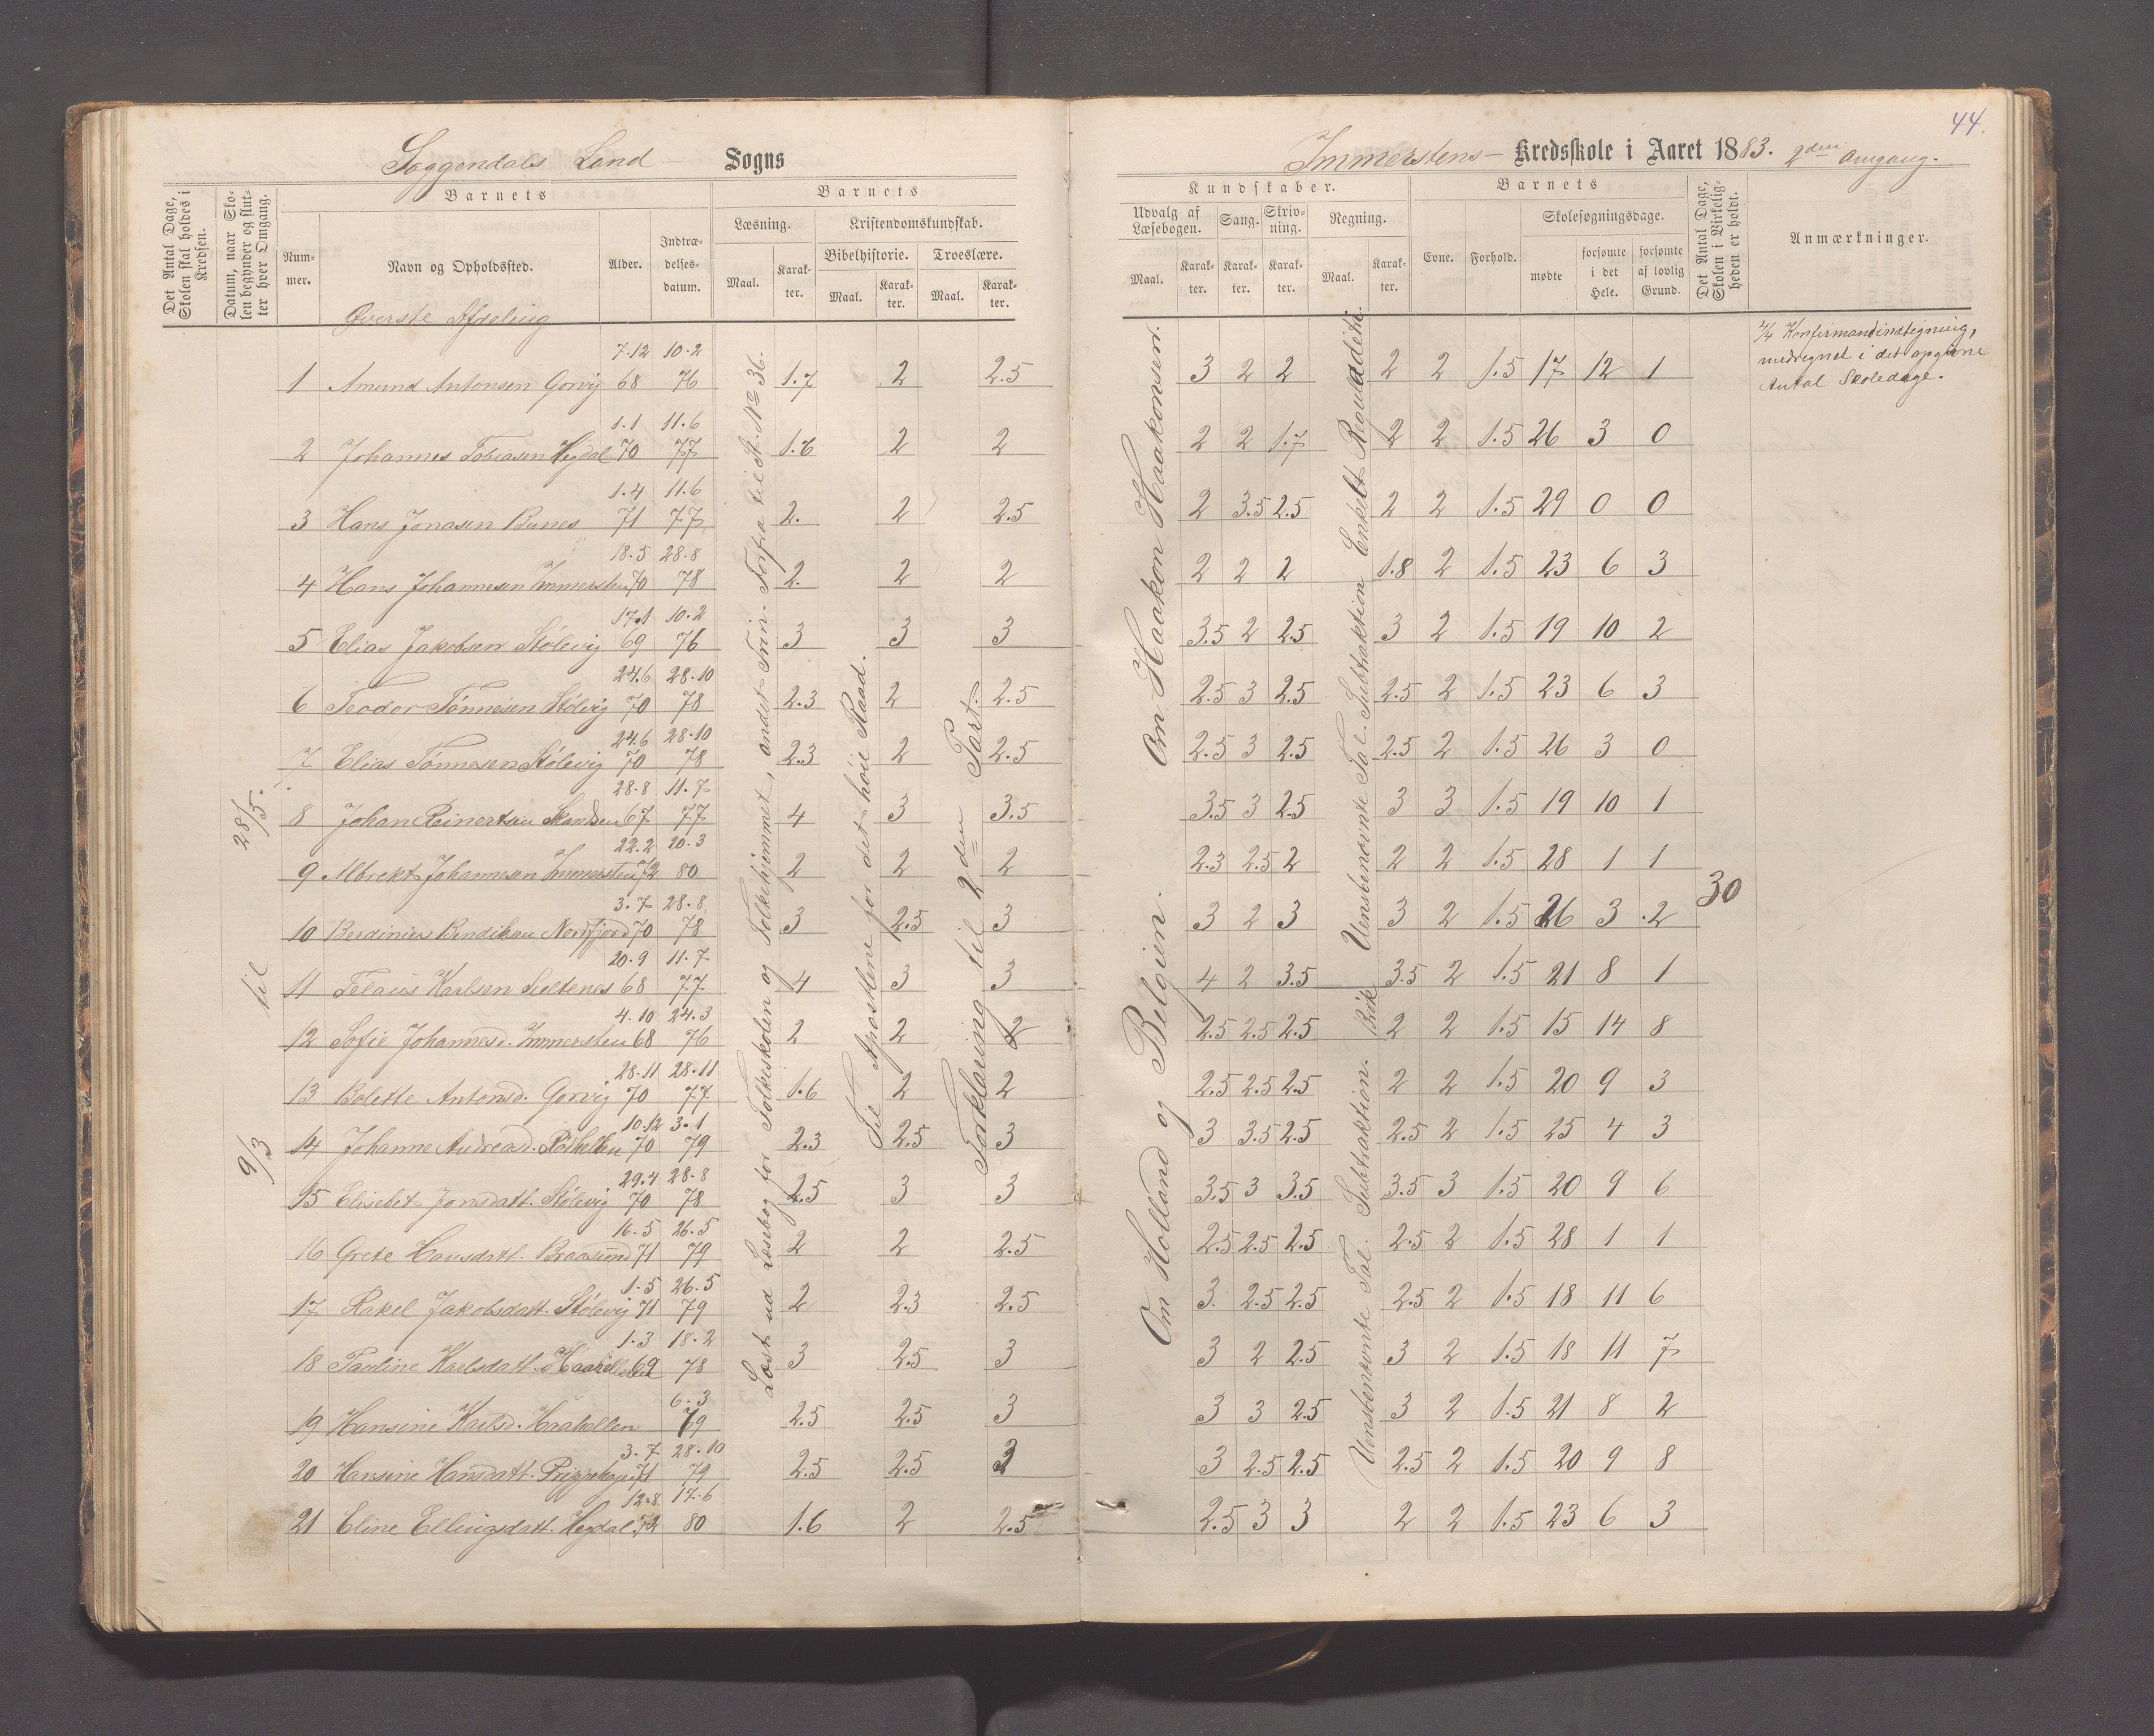 44.
Soggendals Land Sogns
Immerstens Kredsskole i Aaret 1883. 2den Omgang.
Det Antal Dage, Skolen skal holdes i Kredsen.
Datum, naar Skolen begynder og slutter hver Omgang.
Barnets
Nummer.
Navn og Opholdssted.
Alder.
Indtrædelsesdatum.
Barnets
Læsning.
Maal.
Karakter.
Kristendomskundskab.
Bibelhistorie.
Maal.
Karakter.
Troeslære.
Maal.
Karakter.
Kundskaber.
Udvalg af Læsebogen.
Maal.
Karakter.
Sang.
Karakter.
Skrivning.
Karakter.
Regning.
Maal.
Karakter.
Barnets
Evne.
Forhold.
Skolesøgningsdage.
mødte
forsømte i det Hele.
forsømte af lovlig Grund.
Det Antal Dage, Skolen i Virkeligheden er holdt.
Anmærkninger.
Øverste Afdeling
7.12 10.2
1 Amund Antonsen Gorvig 68 76 1.7 2 2.5 3 2 2 2 2 1.5 17 12 1
1.1 11.6
2 Johannes Tobiasen Hegdal 70 77 1.6 2 2 2 2 1.7 2 2 1.5 26 3 0
1.4 11.6
3 Hans Jonasen Bunes 71 77 2. 2 2.5 2 3.5 2.5 2 2 1.5 29 0 0
18.5 28.8
4 Hans Johannesen Immersten 70 78 2. 2 2 2 2 2 1.8 2 1.5 23 6 3
17.1 10.2
5 Elias Jakobsen Stølevig 69 76 3 3 3 3.5 2 2.5 3 2 1.5 19 10 2
24.6 28.10
6 Teodor Tønnesen Stølvig 70 78 2.3 2 2.5 2.5 3 2.5 2.5 2 1.5 23 6 3
24.6 28.10
7 Elias Tønnesen Stølevig 70 78 2.3 2 2.5 2.5 3 2.5 2.5 2 1.5 26 3 0
28.8 11.7
8 Johan Reinertsen 67 77 4 3 3.5 3.5 3 2.5 3 3 1.5 19 10 1
22.2 20.3
9 Albrekt Johannesen Immersten 72 80 2 2 2 2.3 2.5 2 2 2 1.5 28 1 1
3.7 28.8
10 Berdinius Bendiksen Nordfjord 70 78 3 2.5 3 3 2 3 3 2 1.5 26 3 2
20.9 11.7
11 Karlsen 68 77 4 3 3 4 2 3.5 3.5 2 1.5 21 8 1
4.10 24.3
12 Sofie Johannesd. Immersten 68 76 2 2 2 2.5 2.5 2.5 2 2 1.5 15 14 8
28.11 28.11
13 Bolette Antonsd. Gorvig 70 77 1.6 2 2 2.5 2.5 2.5 2 2 1.5 20 9 3
10.12 3.1
14 Johanne Andreasd. 70 79 2.3 2.5 3 3 3.5 2.5 2.5 2 1.5 25 4 3
29.4 28.8
15 Elisebet Jonsdatt. Stølevig 70 78 2.5 3 3 3.5 3 3.5 3.5 3 1.5 20 9 6
16.5 26.5
16 Grete Hansdatt. Braasund 71 79 2 2 2.5 2.5 2.5 2.5 2.5 2 1.5 28 1 1
1.5 26.5
17 Rakel Jakobsdatt. Stølevig 71 79 2 2.3 2.5 3. 2.5 2.5 2.5 2 1.5 18 11 6
1.3 18.2
18 Pauline Karlsdatt. 69 78 3 2.5 3 3 2 2.5 3 2 1.5 18 11 7
6.3
19 Hansine Karlsd. Hrahellen 79 2.5 2.5 3 3 3 2.5 3 2 1.5 21 8 2
3.7 28.10
20 Hansine Hansdatt. 71 79 2.5 2.5 3 2.5 2.5 2.5 2 1.5 20 9 8
12.8 17.6
21 Eline Ellingsdatt. Hegdal. 72 80 1.6 2 2.5 2.5 3 3 2 2 1.5 23 6 3
9/3 til 28/5.
Læst ud Læsebog for Folkeskolen og Folkehjemmet, andet Trin. Forfra til St. No 36.
Til Apostlene for det høie Raad.
Forklaring til 2den Part.
Om Holland og Belgien. Om Haakon Haakonsen.
Uensbenævnte Tal. Subtraktion. Brøk
Uensbenævnte Tal. Subtraktion Enkelt Reguladetri.
30
2/4 Konfirmandindtegning,
medregnet i det opgivne
Antal Skoledage.